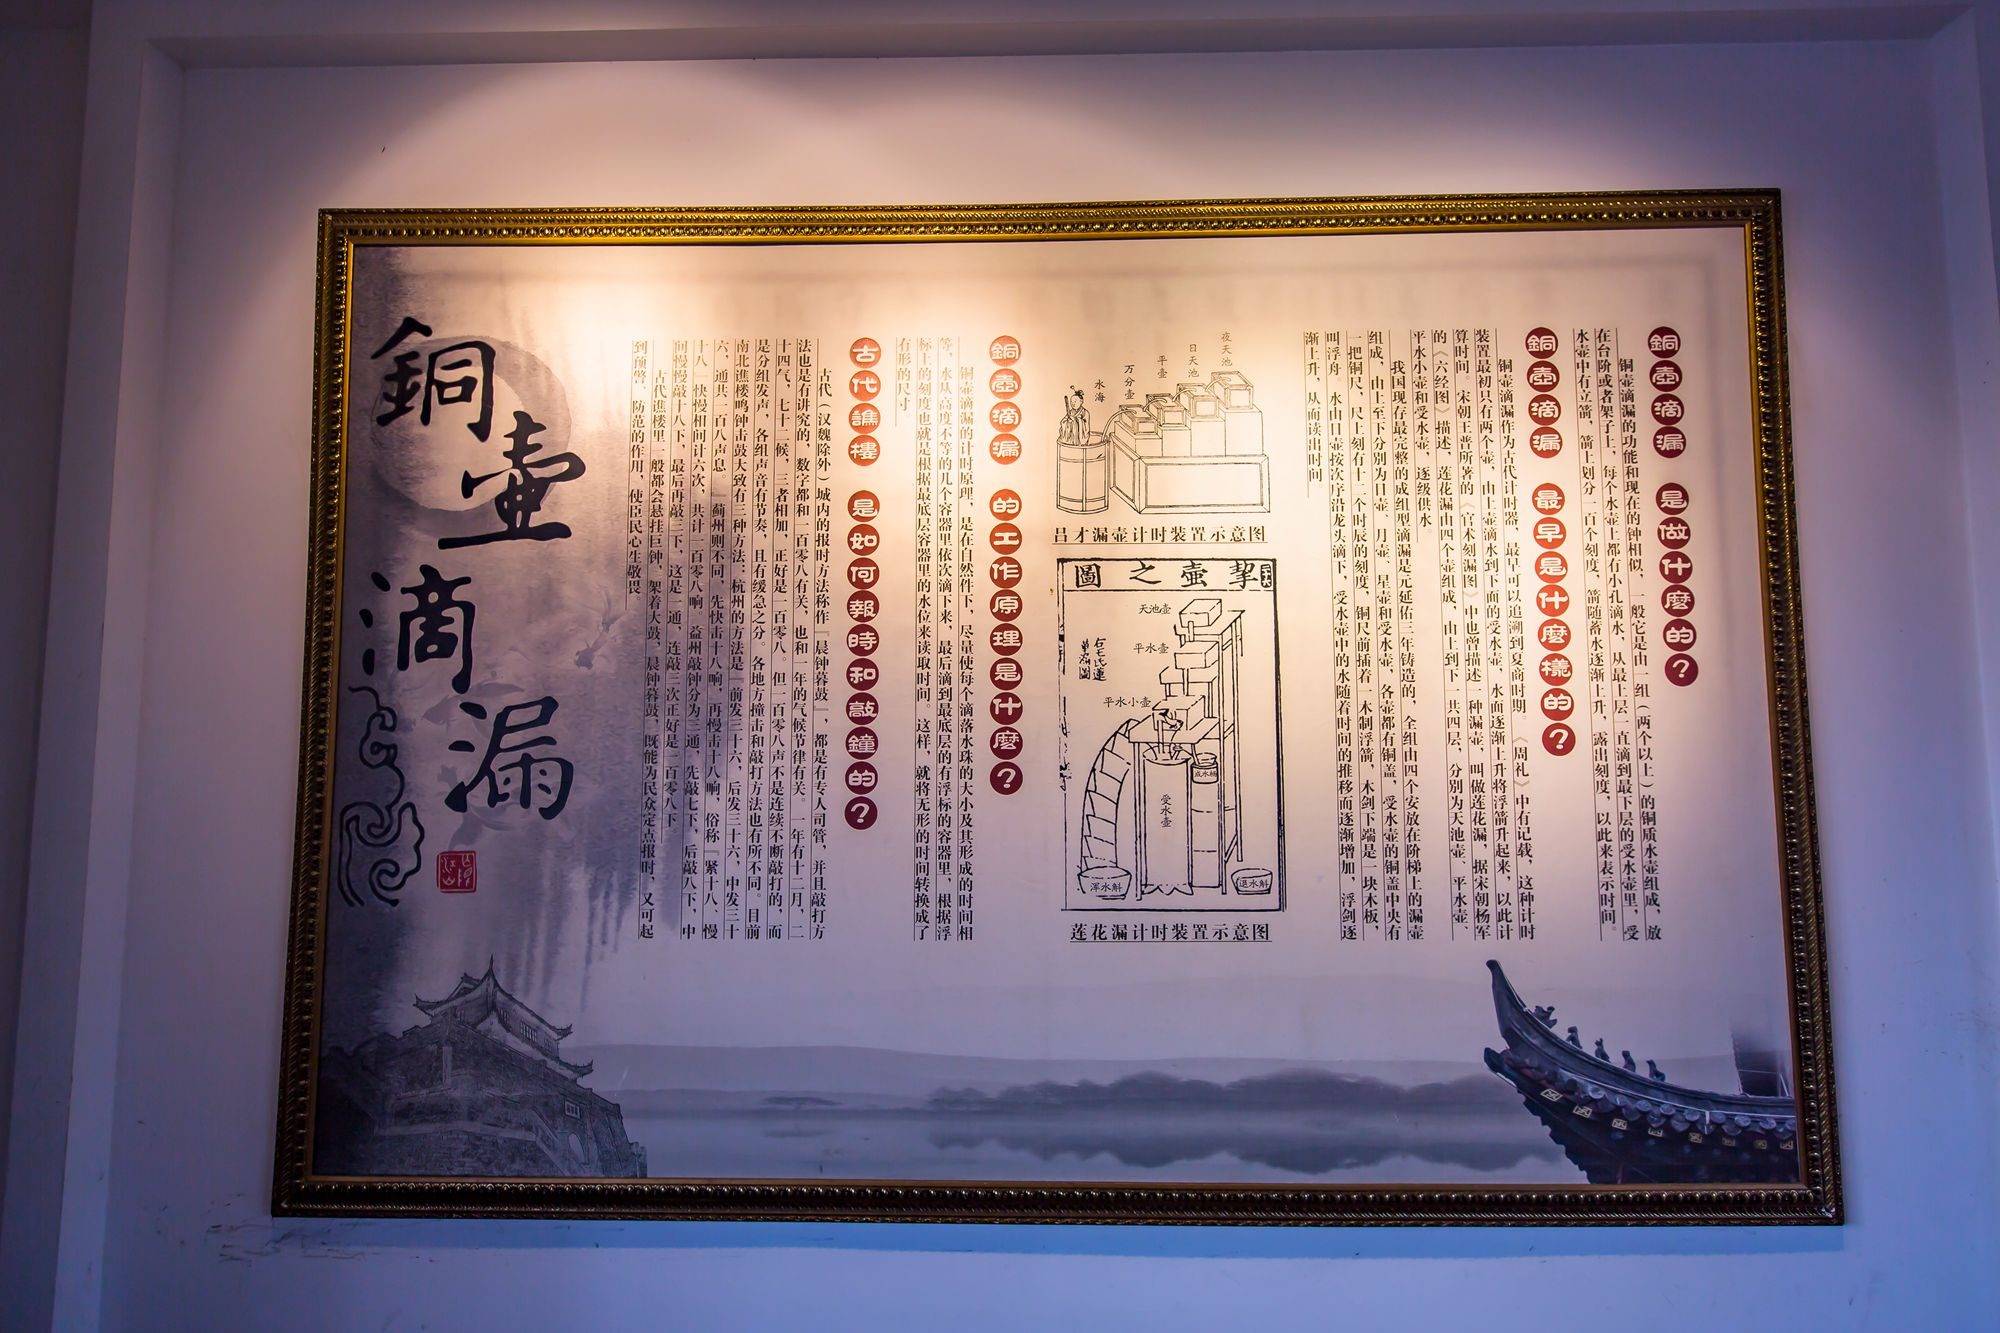 銅壺滴漏 是做什麽的?
铜壶滴漏的功能和现在的钟相似,一般它是由一组(两个以上)的铜质水壶组成,放
在台阶或者架子上,每个水壶上都有小孔滴水,从最上层一直滴到最下层的受水壶里,受
水壶中有立箭,箭上划分一百个刻度,箭随蓄水逐渐上升,露出刻度,以此来表示时间。
銅壺滴漏 最早是什麽樣的?
铜壶滴漏作为古代计时器,最早可以追溯到夏商时期。《周礼》中有记载,这种计时
装置最初只有两个壶,由上壶滴水到下面的受水壶,水面逐渐上升将浮箭升起来,以此计
算时间。宋朝王普所著的《官术刻漏图》中也曾描述一种漏壶,叫做莲花漏,据宋朝杨军
的《六经图》描述,莲花漏由四个壶组成,由上到下一共四层,分别为天池壶、平水壶、
平水小壶和受水壶,逐级供水
我国现存最完整的成组型滴漏是元延佑三年铸造的,全组由四个安放在阶梯上的漏壶
组成,由上至下分别为日壶、月壶、星壶和受水壶,各壶都有铜盖,受水壶的铜盖中央有
一把铜尺,尺上刻有十二个时辰的刻度,铜尺前插着一木制浮箭,木剑下端是一块木板,
叫浮舟。水由日壶按次序沿龙头滴下,受水壶中的水随着时间的推移而逐渐增加,浮剑逐
渐上升,从而读出时间
夜天池
日天池
平壶
万分壶
水海
吕才漏壶计时装置示意图
挈壺之圖
天池壶
平水壶
平水小壶
受水壶
减水桶
浑水斛
退水斛
莲花漏计时装置示意图
銅壺滴漏 的工作原理是什麽?
铜壶滴漏的计时原理,是在自然件下,尽量使每个滴落水珠的大小及其形成的时间相
等,水从高度不等的几个容器里依次滴下来,最后滴到最底层的有浮标的容器里,根据浮
标上的刻度也就是根据最底层容器里的水位来读取时间。这样,就将无形的时间转换成了
有形的尺寸
古代譙樓 是如何報時和敲鐘的?
古代(汉魏除外)城内的报时方法称作『晨钟暮鼓』,都是有专人司管,并且敲打方
法也是有讲究的,数字都和一百零八有关,也和一年的气候节律有关。一年有十二月,二
十四气,七十二候,三者相加,正好是一百零八。但一百零八声不是连续不断敲打的,而
是分组发声,各组声音有节奏,且有缓急之分。各地方撞击和敲打方法也有所不同。目前
南北谯楼鸣钟击鼓大致有三种方法:杭州的方法是『前发三十六,后发三十六,中发三十
六,通共一百八声息。』蓟州则不同,先快击十八响,再慢击十八响,俗称『紧十八、慢
十八』,快慢相间计六次,共计一百零八响。益州敲钟分为三通,先敲七下,后敲八下,中
间慢慢敲十八下,最后再敲三下,这是一通,连敲三次正好是一百零八下
古代谯楼里一般都会悬挂巨钟,架着大鼓,晨钟暮鼓,既能为民众定点报时,又可起
到预警、防范的作用,使臣民心生敬畏。
銅壺滴漏